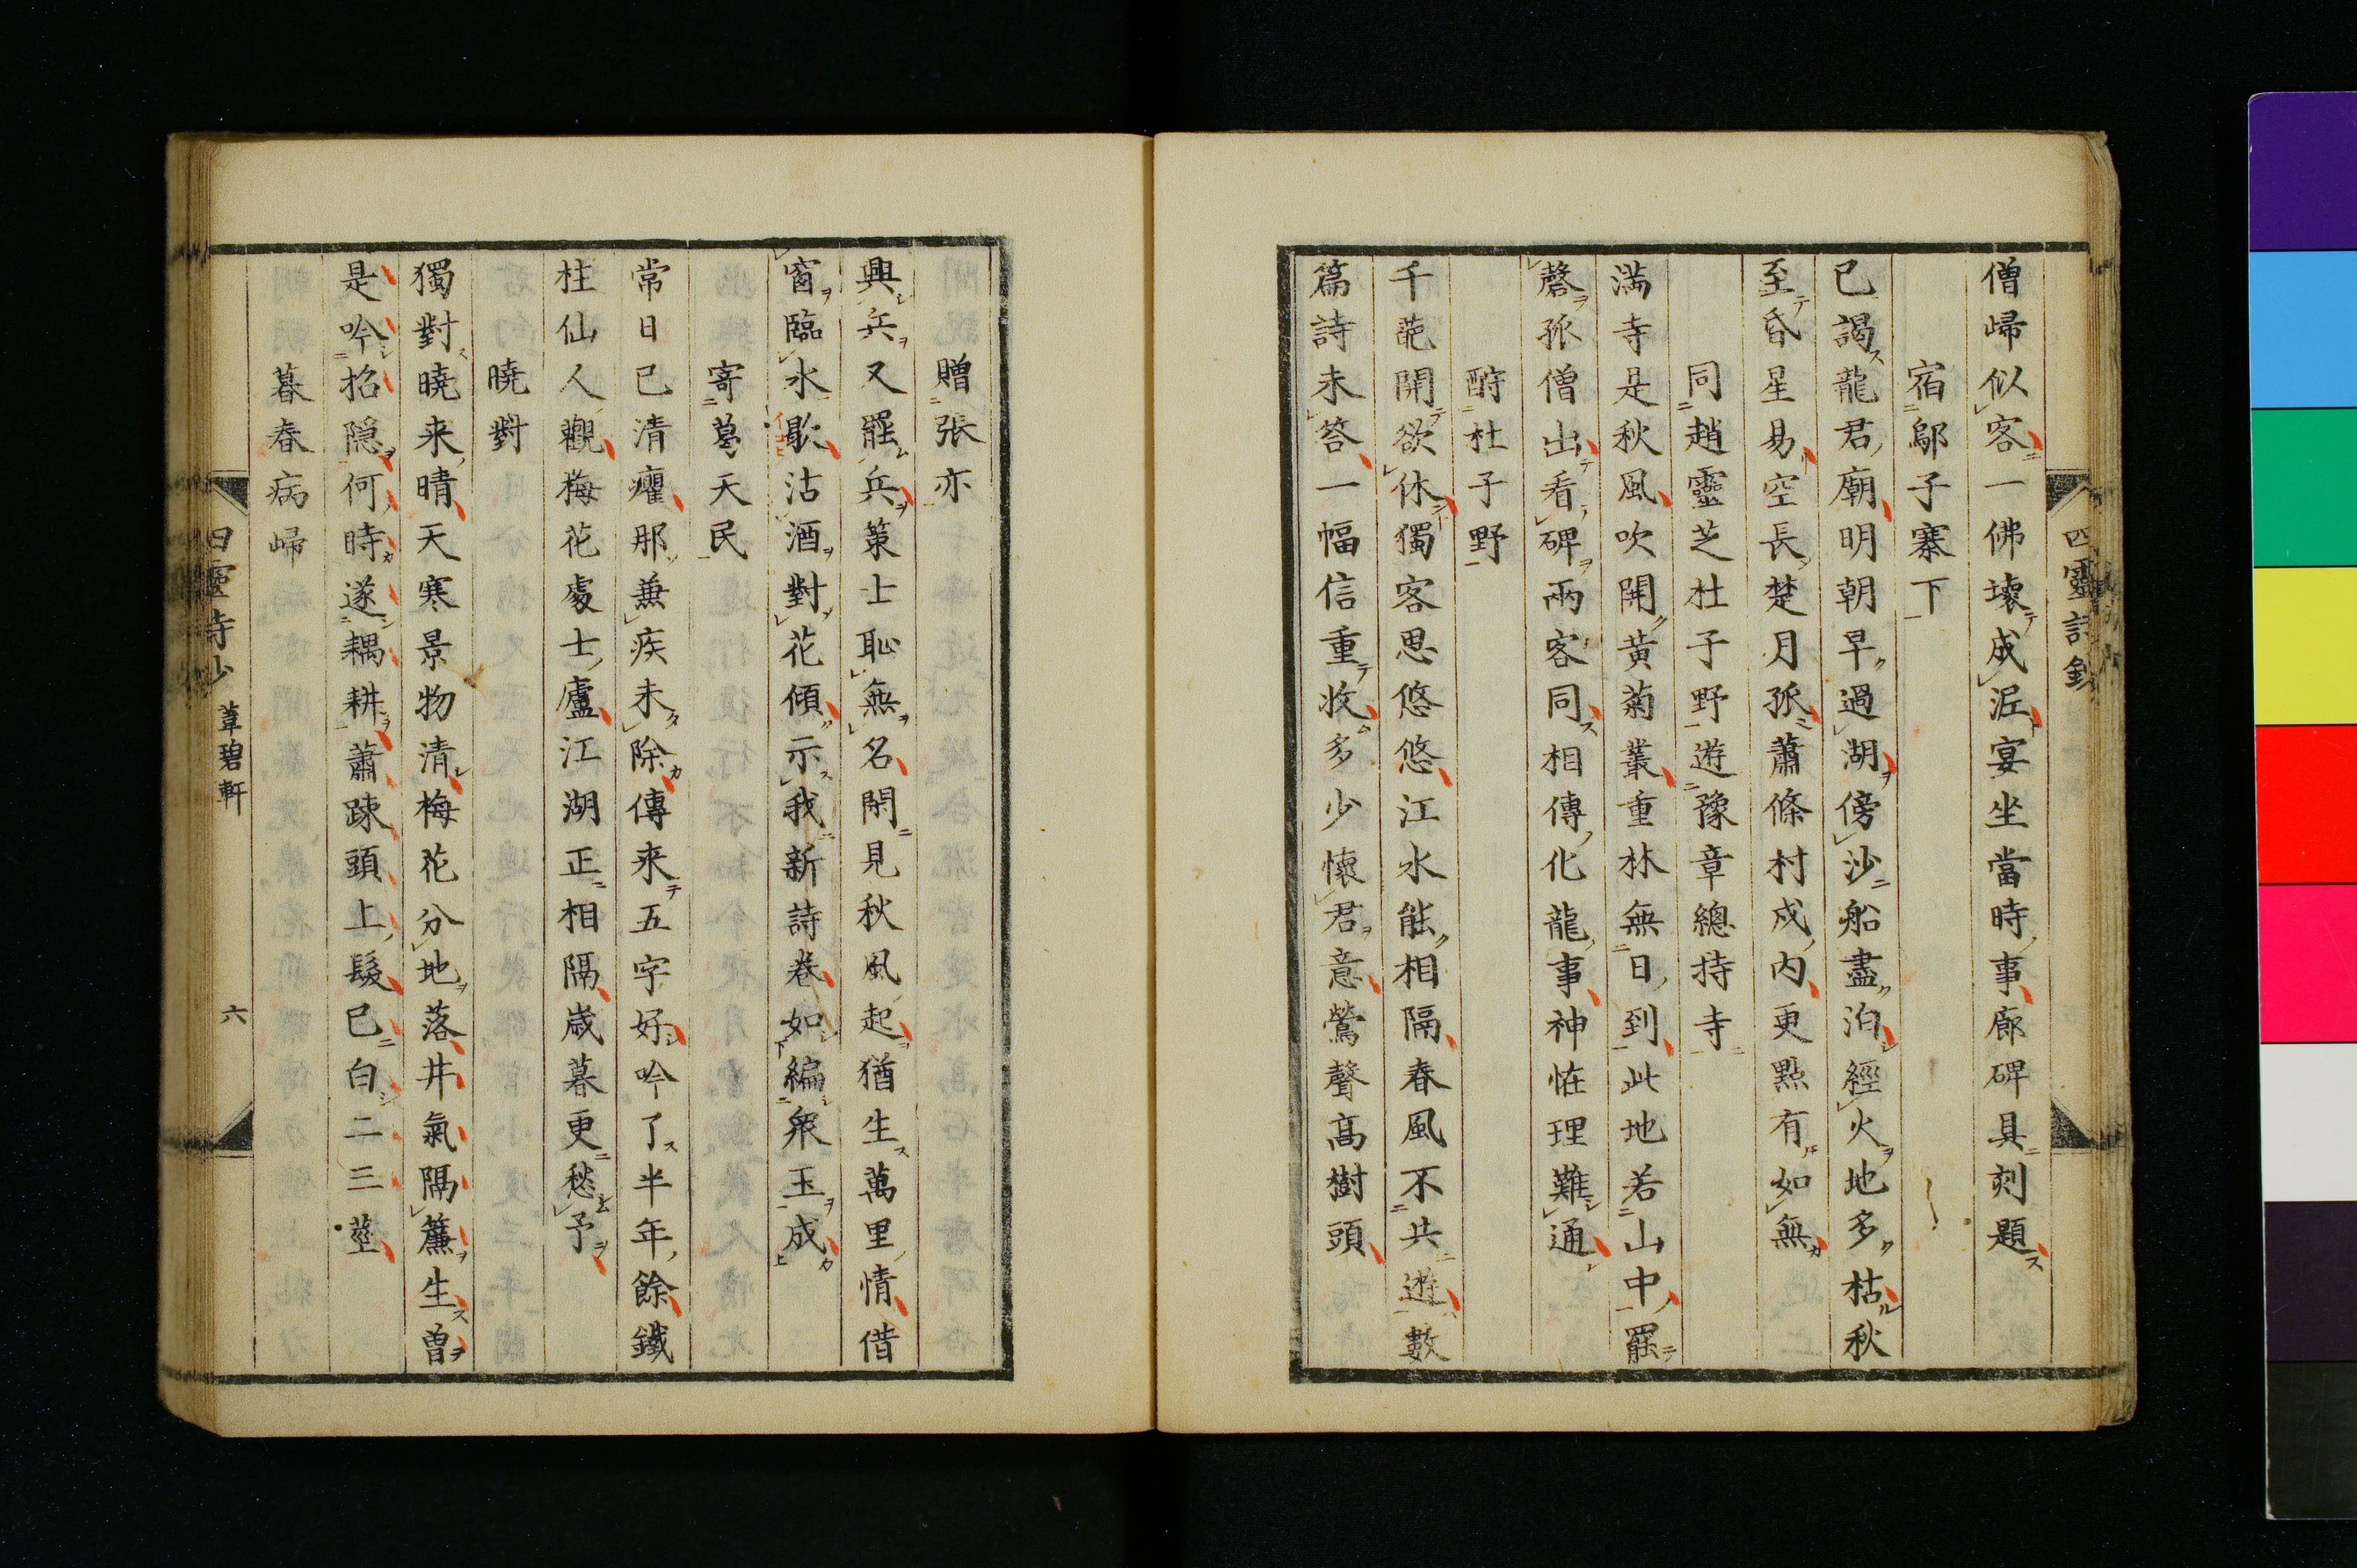 四靈詩鈔
僧歸似客一佛壞成泥宴坐當時事廊碑具刻題
宿鄔子寨下
已謁龍君廟明朝早過湖傍沙船盡泊經火地多枯秋
至昏星易空長楚月孤蕭條村戍内更點有如無
同趙靈芝杜子野遊豫章總持寺
滿寺是秋風吹開黃菊叢重林無日到此地若山中罷
磬孤僧出看碑兩客同相傳化龍事神怪理難通
酧杜子野
千葩開欲休獨客思悠悠江水能相隔春風不共遊數
篇詩未答一幅信重收多少懷君意鶯聲高樹頭
贈張亦
興兵又罷兵策士恥無名閑見秋風起猶生萬里情借
窗臨水歇沽酒對花傾示我新詩卷如編衆玉成
寄葛天民
常日已清癯那兼疾未除傳来五字好吟了半年餘鐵
柱仙人觀梅花處士廬江湖正相隔歳暮更愁予
曉對
獨對曉来晴天寒景物清梅花分地落井氣隔簾生曽
是吟招隠何時遂耦耕蕭踈頭上髮已白二三莖
暮春病歸
四靈詩鈔 葦碧軒 六